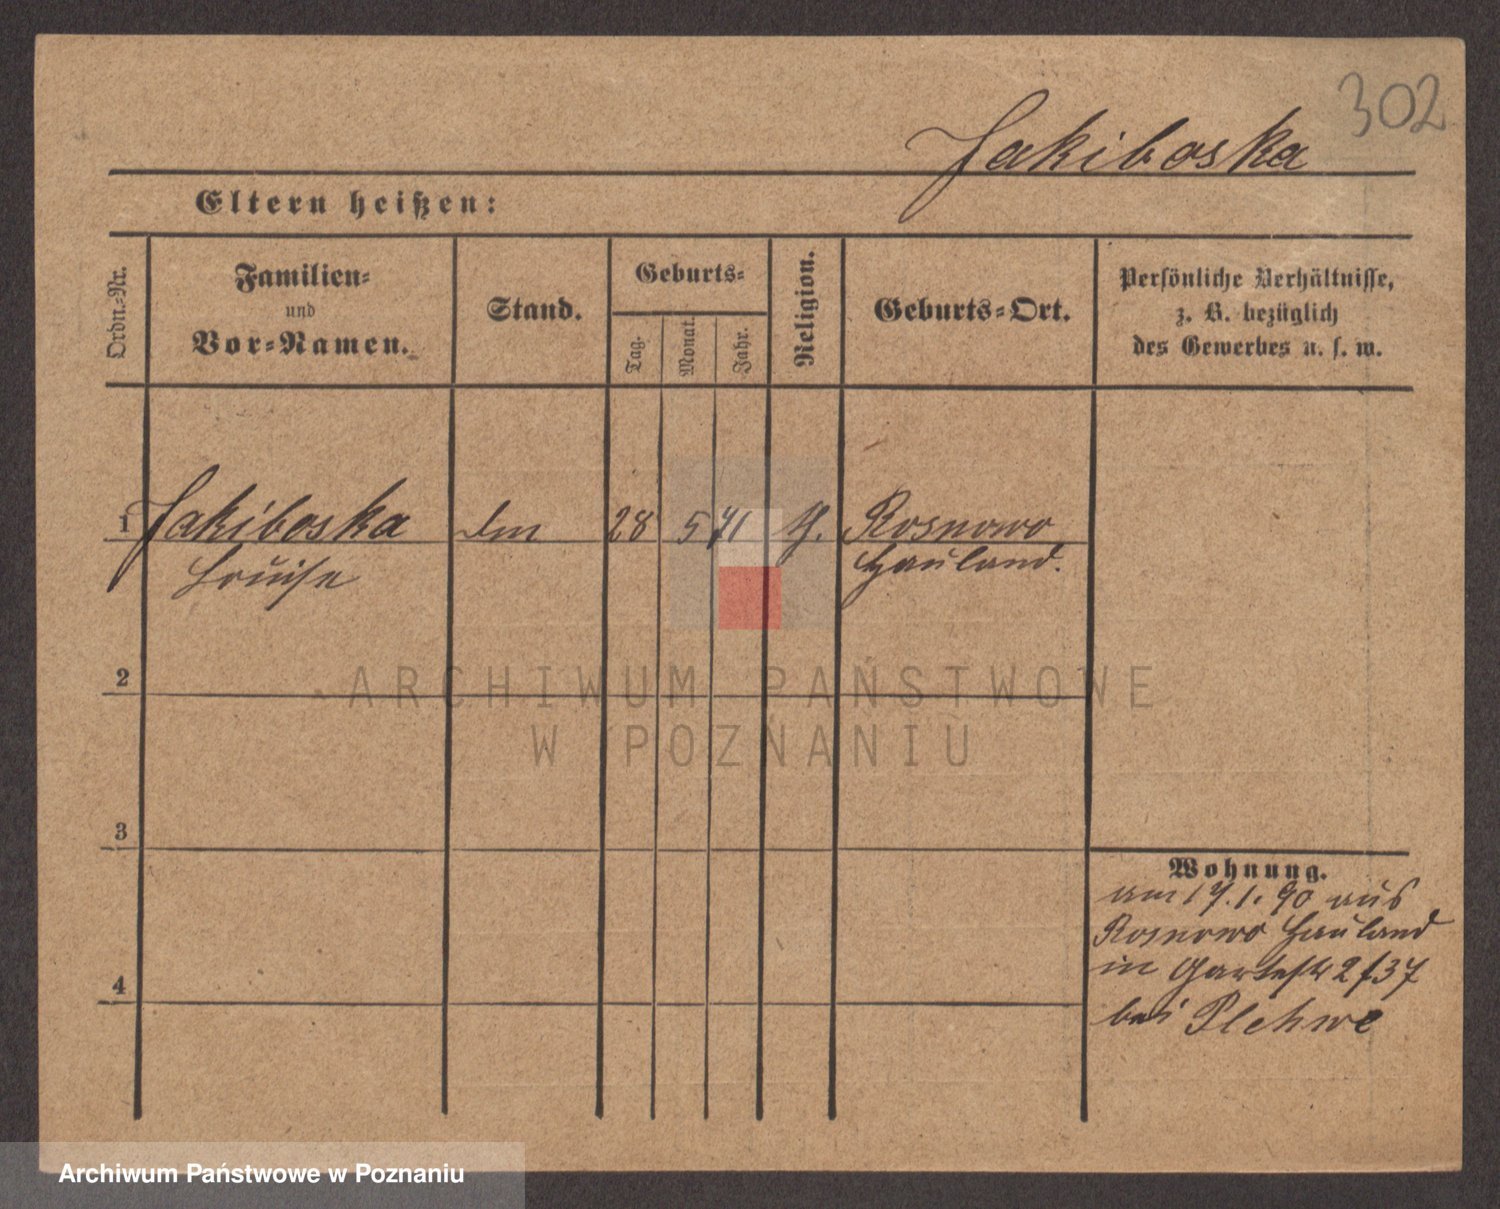 302
Jakiboska
Eltern heißen:
Ordn.-Nr.
Familien-
und
Vor-Namen.
Stand.
Geburts-
Tag.
Monat.
Jahr.
Religion.
Geburts-Ort.
Persönliche Verhältnisse,
z. B. bezüglich
des Gewerbes u. s. w.
1 Jakiboska 28 5 71 Rosnowo
Louise Hauland.
2
3
4
Wohnung.
am 17.1.90 aus
Rosnowo Hauland
in Gartestr 2 f 37
bei Plehwe
ARCHIWUM PAŃSTWOWE
W POZNANIU
Archiwum Państwowe w Poznaniu